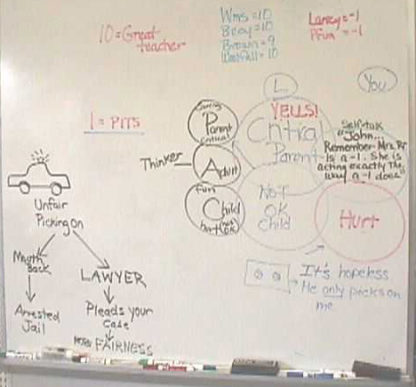 10=Great teacher
Wms=10
Bray=10
Brown=9
=10
Laney=-1
Pfun=-1
1=PITS
L
You
YELLS!
Critical
Parent
Parent
critical
Thinker
Adult
fun
Child
hurt
NOT
OK
Child
Self-talk
"John...
Remember Mrs.
is a -1. She is
acting exactly the
way a -1 does"
Hurt
It's hopeless
He only picks on
me
Unfair
Picking on
Mouth
Back
Arrested
Jail
LAWYER
Pleads your
case
FAIRNESS